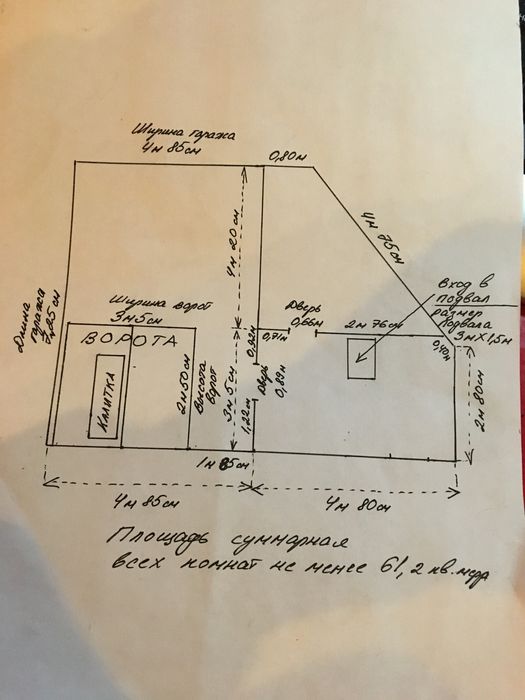 Ширина гаража
4м 85см
0,80м
4м 20см
4м 25см
вход в
подвал
размер
подвала
3м х 1,5м
Длина
гаража
Ширина ворот
3м 5см
ВОРОТА
Калитка
2м 50см
Высота
ворот
3м 5см
Дверь
0,66м
0,71м
2м 76см
0,40м
Дверь
0,89м
1,22см
2м 80см
4м 85см
4м 80см
Площадь суммарная
всех комнат не менее 61,2 кв.метр